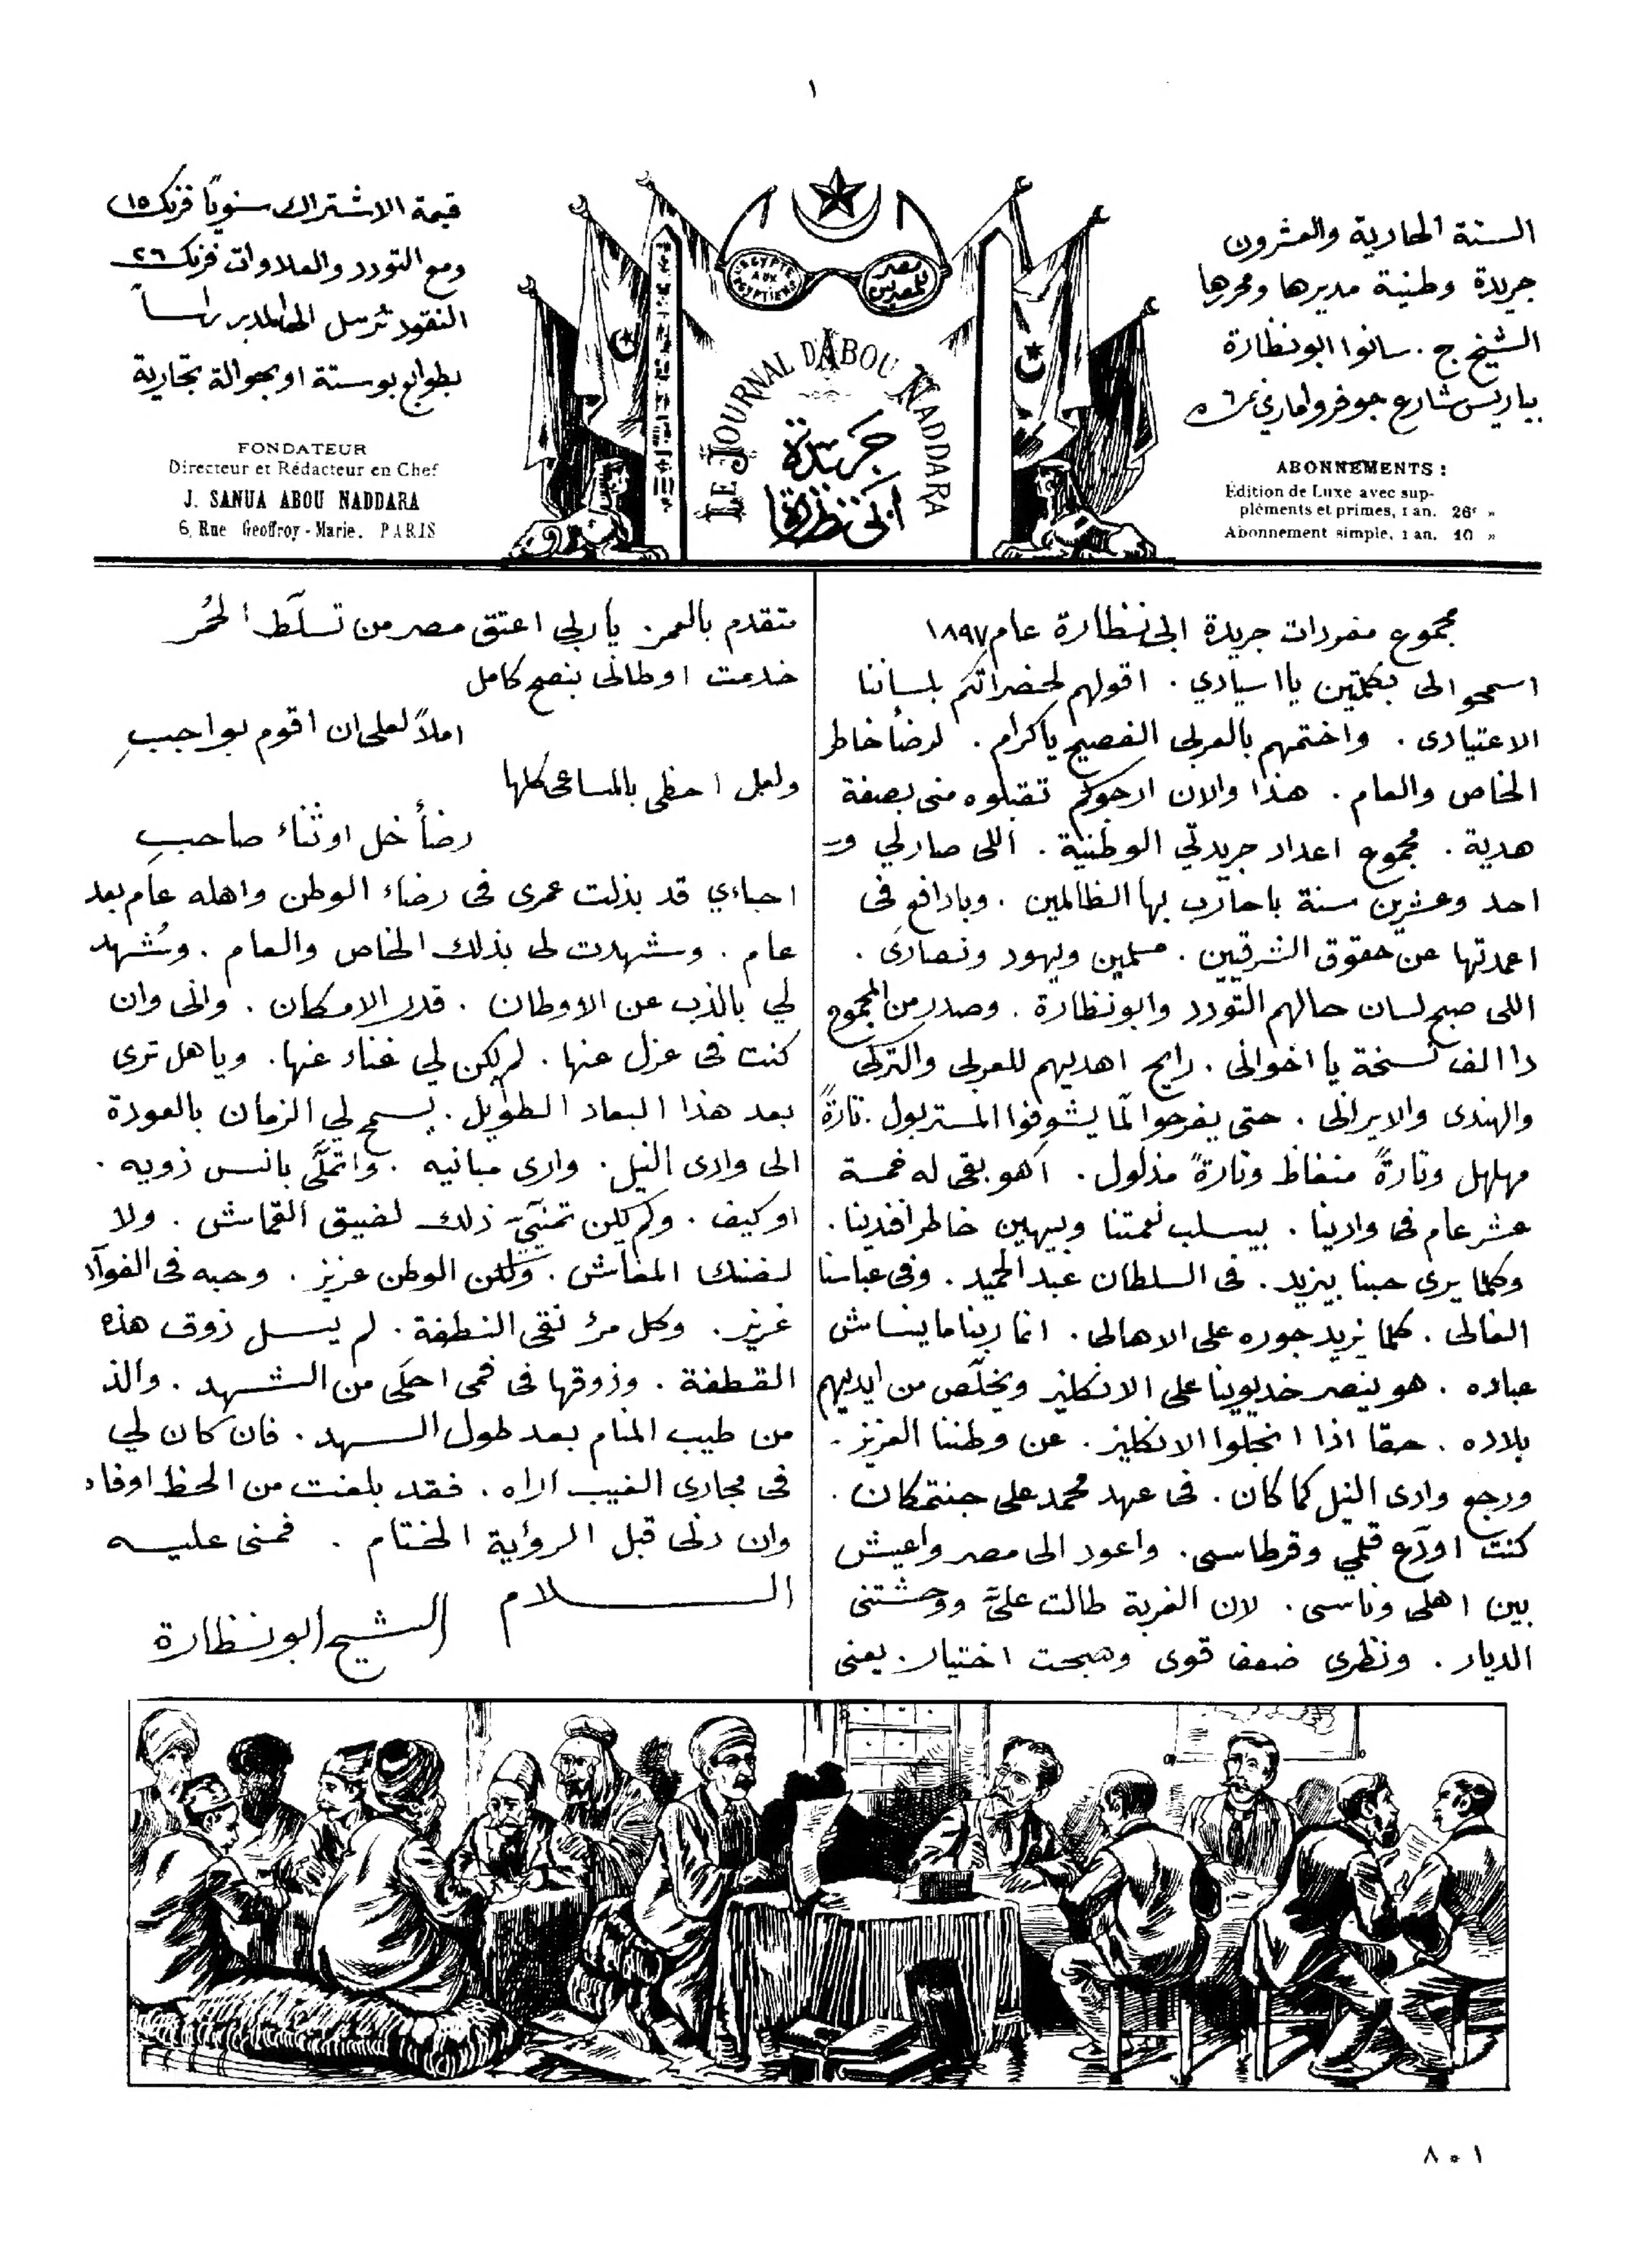 ١
السنة الحادية والعشرون
جريدة وطنية مديرها ومحررها
الشيخ ج. سانوا ابو نظارة
بباريس شارع جوفروا ماري نمرة ٦
ABONNEMENTS :
Edition de Luxe avec sup-
pléments et primes, 1 an. 26f »
Abonnement simple, 1 an. 10 »
EGYPTE AUX EGYPTIENS
مصر للمصريين
LE JOURNAL D'ABOU NADDARA
جريدة
ابى نظارة
قيمة الاشتراك سنوياً فرنك ١٥
ومع التودد والعلاوات فرنك ٢٦
النقود تُرسل الى المدير راساً
بطوابع بوستة او بحوالة تجارية
FONDATEUR
Directeur et Rédacteur en Chef
J. SANUA ABOU NADDARA
6, Rue Geoffroy-Marie. PARIS
مجموع مفردات جريدة ابى نظارة عام ١٨٩٧
اسمحو الى بكلمتين يا اسيادي . اقولهم لحضراتكم بلساننا
الاعتيادى . واختمهم بالعربى الفصيح يا كرام . لرضأ خاطر
الخاص والعام . هذا والان ارجوكم تقبلوه منى بصفة
هدية . مجموع اعداد جريدتي الوطنية . اللى صار لي
احد وعشرين سنة باحارب بها الظالمين . وبادافع فى
اعمدتها عن حقوق الشرقيين . مسلمين ويهود ونصارى .
اللى صبح لسان حالهم التودد وابو نظارة . وصدر من المجموع
دا الف نسخة يا اخوانى . رايح اهديهم للعربى والتركى
والهندى والايرانى . حتى يفرحوا لمّا يشوفوا المستر بول . تارةً
مهلهل وتارةً منغاظ وتارةً مذلول . اهو بقى له خمسة
عشر عام فى وادينا . بيسلب نعمتنا وبيهين خاطر افندينا .
وكلما يرى حبنا بيزيد . فى السلطان عبد الحميد . وفى عباسنا
الغالى . كلما يزيد جوره على الاهالى . انما ربنا ما ينساش
عباده . هو ينصر خديوينا على الانكليز ويخلّص من ايديهم
بلاده . حقا اذا انجلوا الانكليز . عن وطننا العزيز .
ورجع وادى النيل كما كان . فى عهد محمد على جنتمكان .
كنت اودّع قلمي وقرطاسى . واعود الى مصر واعيش
بين اهلى وناسى . لان الغربة طالت عليَّ ووحشتنى
الديار . ونظرى ضعف قوى وصبحت اختيار . يعنى
متقدم بالعمر . يا ربى اعتق مصر من تسلّط الحُمر
خدمت اوطانى بنصح كامل
املاً لعلى ان اقوم بواجبِ
ولعل احظى بالمساعى كلها
رضأ خل او ثناء صاحبِ
احباءي قد بذلت عمرى فى رضاء الوطن واهله عام بعد
عام . وشهدت لى بذلك الخاص والعام . وشُهد
لي بالذب عن الاوطان . قدر الامكان . وانى وان
كنت فى عزل عنها . لم يكن لي غناء عنها . ويا هل ترى
بعد هذا البعاد الطويل . يسمح لي الزمان بالعودة
الى وادى النيل . وارى مبانيه . واتملَّى بانس ذويه .
او كيف . ولم يكن تمنّيَّ ذلك لضيق القماش . ولا
لضنك المعاش . ولكن الوطن عزيز . وحبه فى الفوآد
غريز . وكل مرُ نقى النطفة . لم يسل ذوق هذه
القطفة . وذوقها فى فمى احلَى من الشهد . والذ
من طيب المنام بعد طول السهد . فان كان لي
فى مجارى الغيب اراه . فقد بلغت من الحظ اوفاه
وان دنى قبل الرؤية الختام . فمنى عليه
السلام
الشيخ ابو نظارة
٨٠١